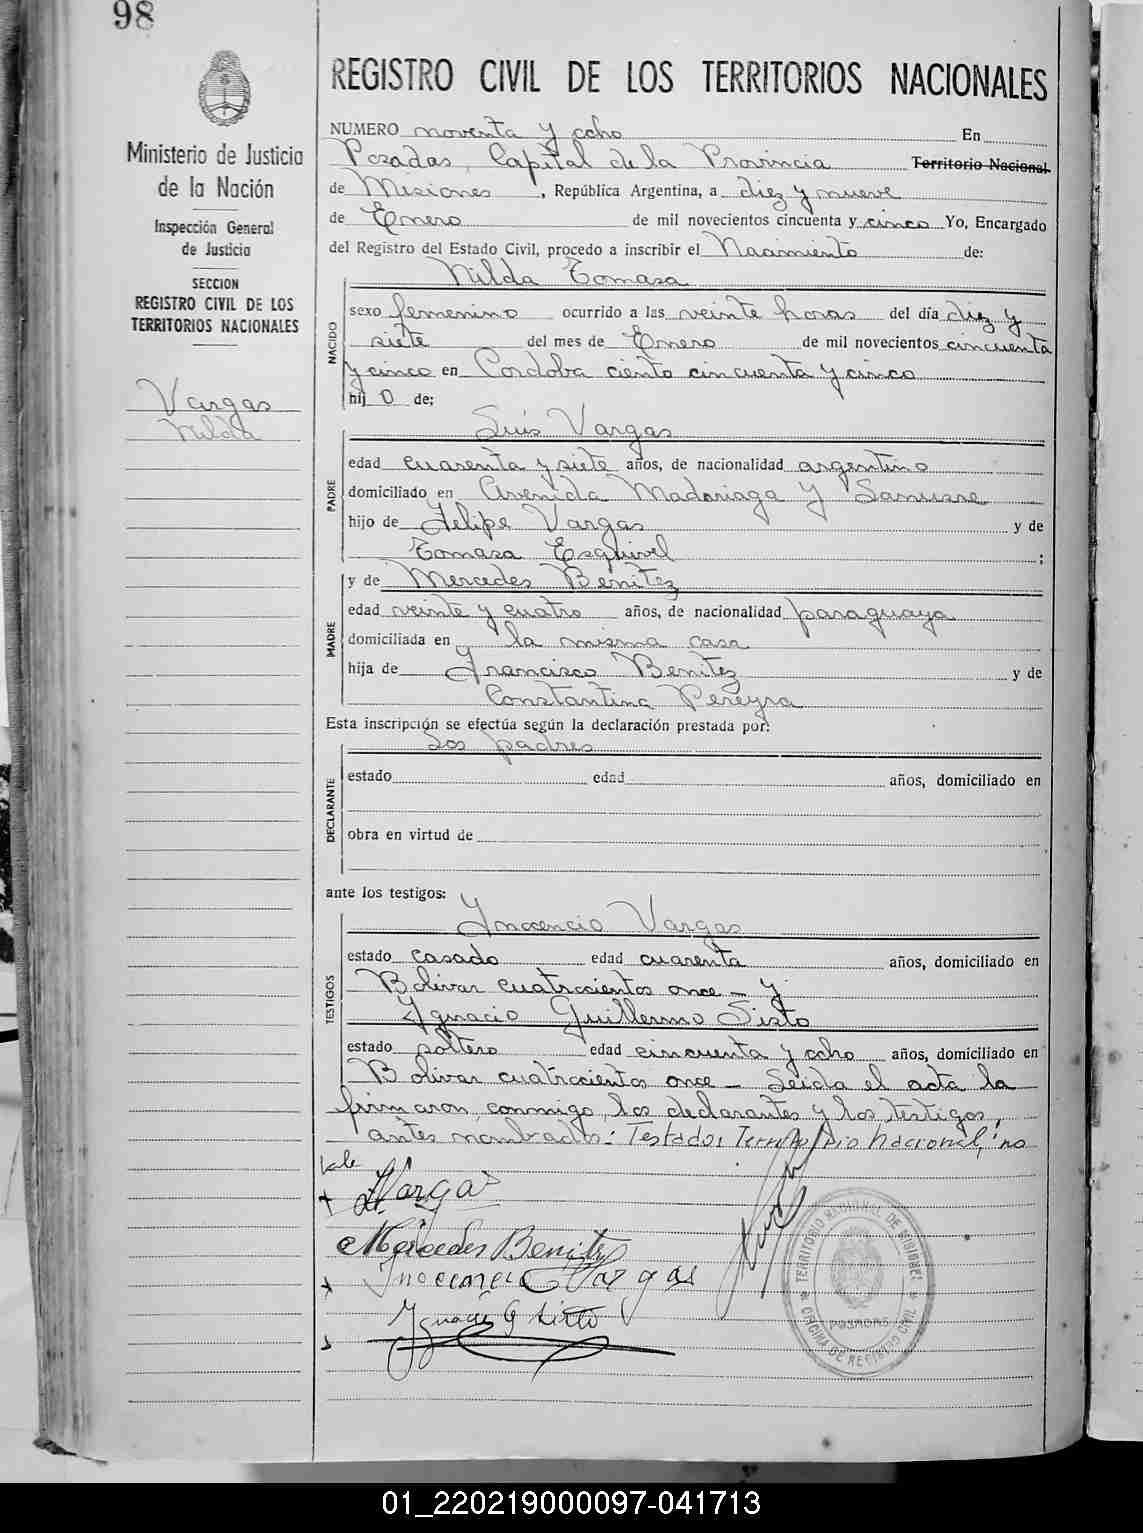 98
REGISTRO CIVIL DE LOS TERRITORIOS NACIONALES
Ministerio de Justicia
de la Nación
Inspección General
de Justicia
SECCION
REGISTRO CIVIL DE LOS
TERRITORIOS NACIONALES
Vargas
Nilda
NUMERO noventa y ocho En
Posadas, Capital de la Provincia Territorio Nacional
de Misiones, República Argentina, a diez y nueve
de Enero de mil novecientos cincuenta y cinco Yo, Encargado
del Registro del Estado Civil, procedo a inscribir el Nacimiento de:
NACIDO
Nilda Tomasa
sexo femenino ocurrido a las veinte horas del día diez y
siete del mes de Enero de mil novecientos cincuenta
y cinco en Cordoba ciento cincuenta y cinco
hij o de:
PADRE
Luis Vargas
edad cuarenta y siete años, de nacionalidad argentino
domiciliado en Avenida Madariaga y
hijo de Felipe Vargas y de
Tomasa Esquivel ;
MADRE
y de Mercedes Benitez
edad veinte y cuatro años, de nacionalidad paraguaya
domiciliada en la misma casa
hija de Francisco Benitez y de
Constantina Pereyra
Esta inscripción se efectúa según la declaración prestada por:
DECLARANTE
Los padres
estado edad años, domiciliado en
obra en virtud de
ante los testigos:
TESTIGOS
Ynocencio Vargas
estado casado edad cuarenta años, domiciliado en
Bolivar cuatrocientos once - y
Ygnacio Guillermo Sisto
estado soltero edad cincuenta y ocho años, domiciliado en
Bolivar cuatrocientos once - Leida el acta la
firmaron conmigo, los declarantes y los testigos,
antes nombrados: Testado: Territorio Nacional, no
vale
L. Vargas
Mercedes Benitez
Inocencio Vargas
Ygnacio G Sisto
TERRITORIO NACIONAL DE MISIONES
POSADAS
OFICINA DE REGISTRO CIVIL
01_220219000097-041713